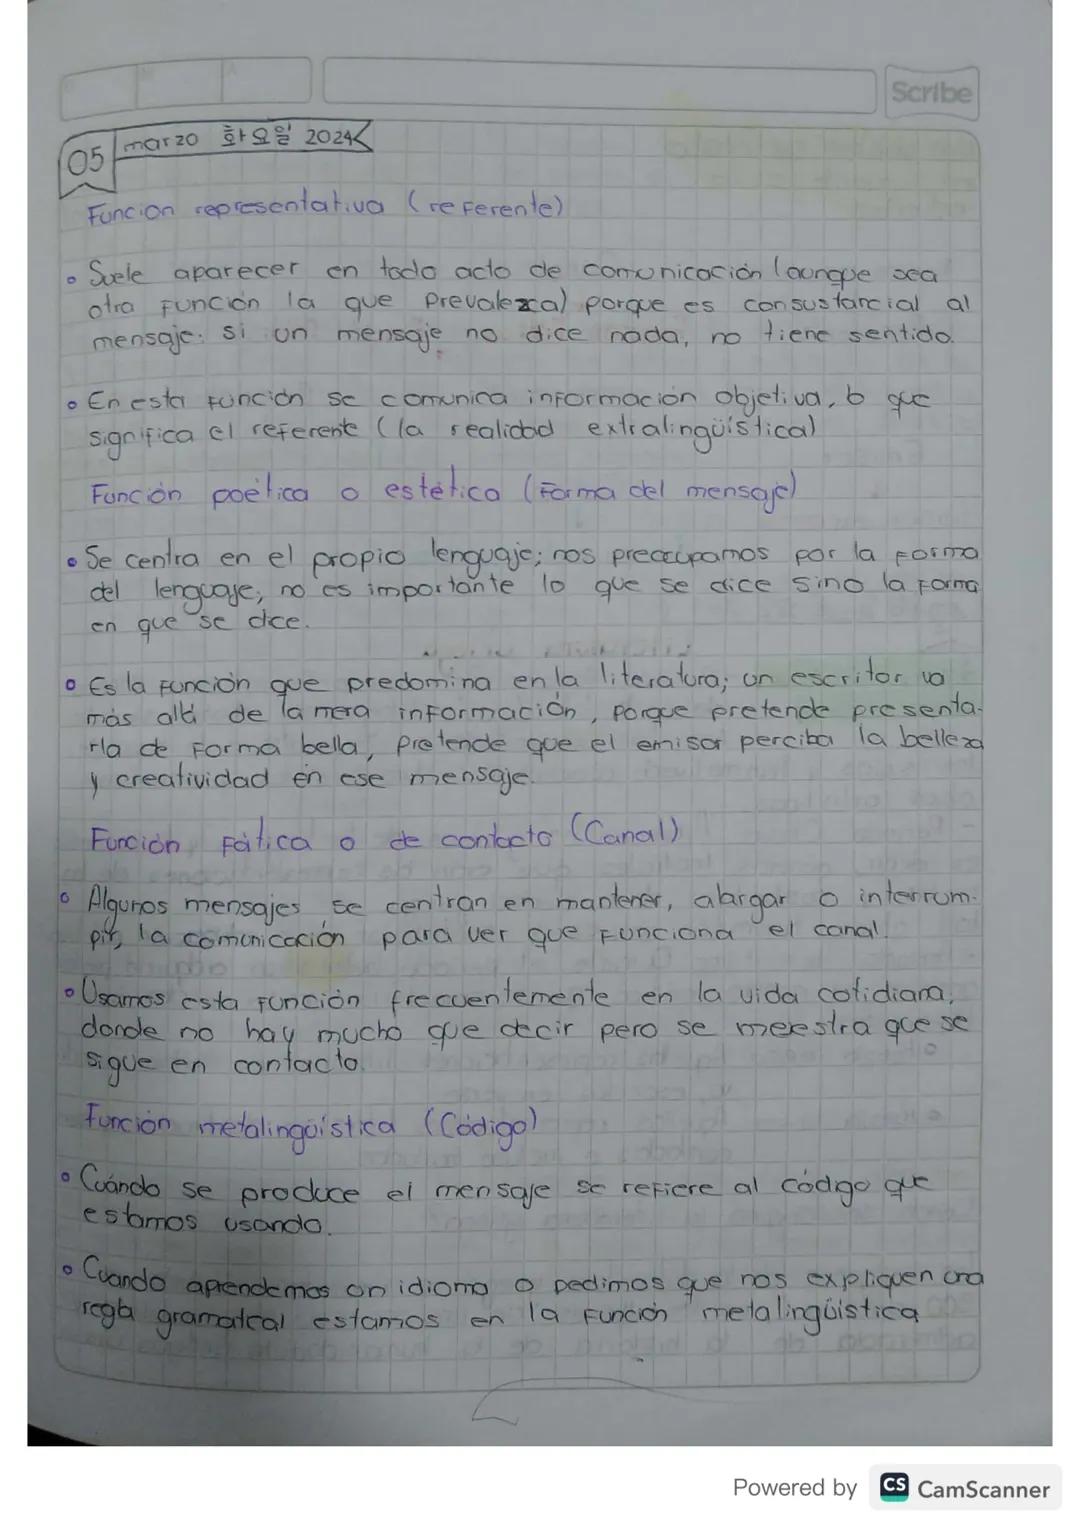 Scribe
05 marzo 화요일 2024
Función representativa (referente)
Suele aparecer en todo acto de comunicación (aunque sea
otra función la que prevalezca) porque es consustancial al
mensaje. Si un mensaje no dice nada, no tiene sentido.
En esta función se comunica información objetiva, lo que
significa el referente (la realidad extralingüística)
Función poética o estética (Forma del mensaje)
Se centra en el propio lenguaje; nos preocupamos por la forma
del lenguaje, no es importante lo que se dice sino la forma
en que se dice.
Es la función que predomina en la literatura; un escritor va
más allá de la mera información, porque pretende presenta-
rla de forma bella, pretende que el emisor perciba la belleza
y creatividad en ese mensaje.
Función Fática o de contacto (Canal)
Algunos mensajes se centran en mantener, alargar o interrum-
pir, la comunicación para ver que funciona el canal.
Usamos esta función frecuentemente en la vida cotidiana,
donde no hay mucho que decir pero se muestra que se
sigue en contacto.
Función metalingüística (Código)
Cuándo se produce el mensaje se refiere al código que
estamos usando.
Cuando aprendemos un idioma o pedimos que nos expliquen una
regla gramatical estamos en la función metalingüística
Powered by CS CamScanner